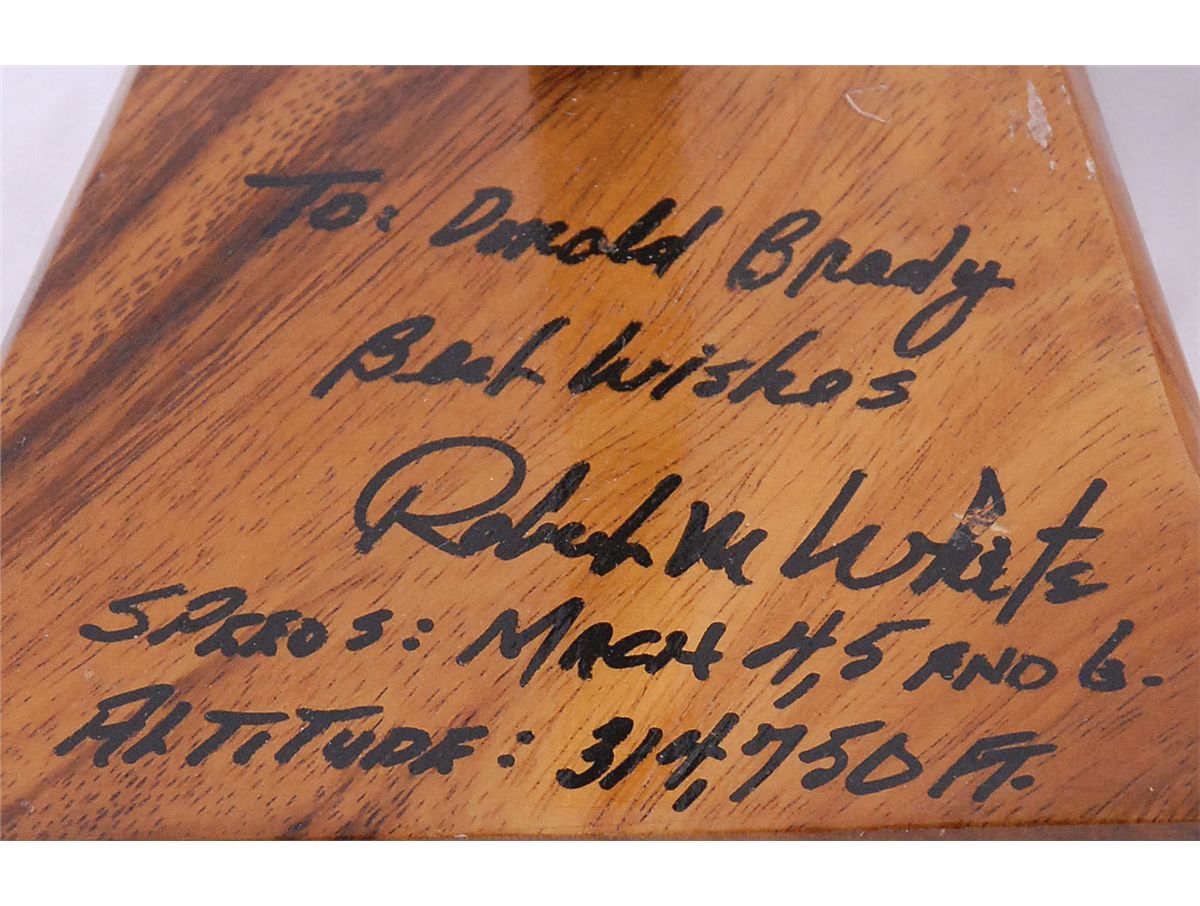 To: Donald Brady
Best Wishes
Robert M White
SPEEDS: MACH 4,5 AND 6.
ALTITUDE: 314,750 FT.